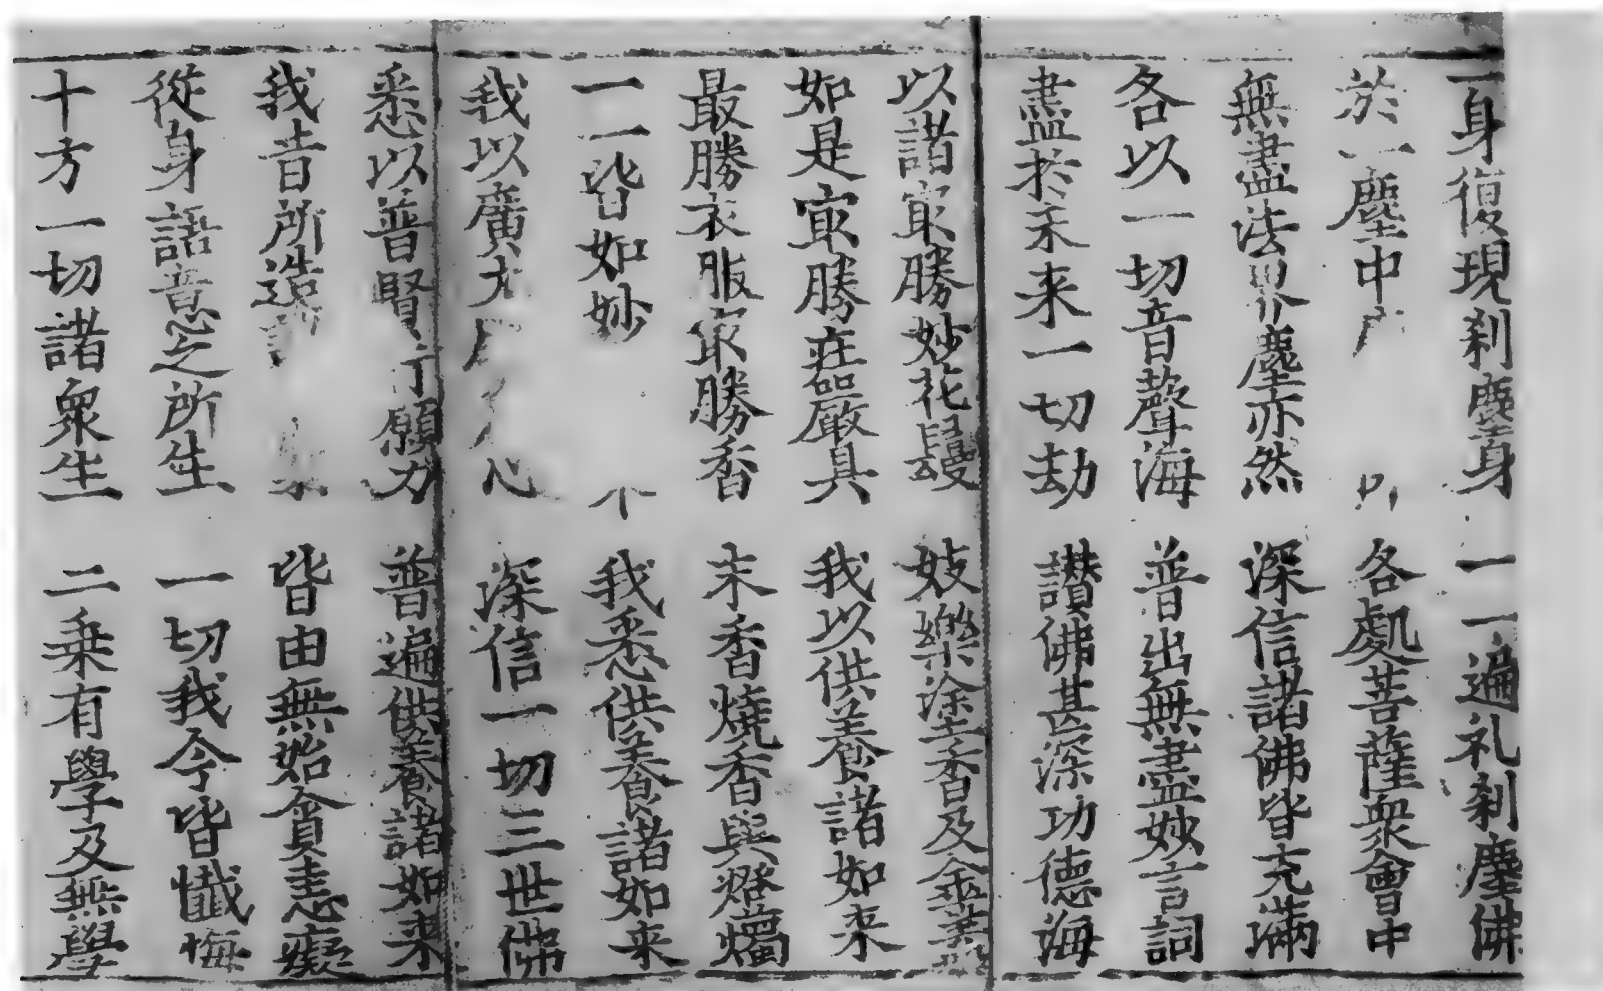 一身復現刹塵身　一一遍礼刹塵佛
於一塵中　各處菩薩衆會中
無盡法界塵亦然　深信諸佛皆充滿
各以一切音聲海　普出無盡妙言詞
盡於未来一切劫　讃佛甚深功德海
以諸㝡勝妙花鬘　妓樂塗香及傘盖
如是㝡勝莊嚴具　我以供養諸如来
最勝衣服㝡勝香　末香燒香與燈燭
一一皆如妙　我悉供養諸如来
我以廣大　心　深信一切三世佛
悉以普賢行願力　普遍供養諸如来
我昔所造　皆由無始貪恚癡
從身語意之所生　一切我今皆懺悔
十方一切諸衆生　二乗有學及無學